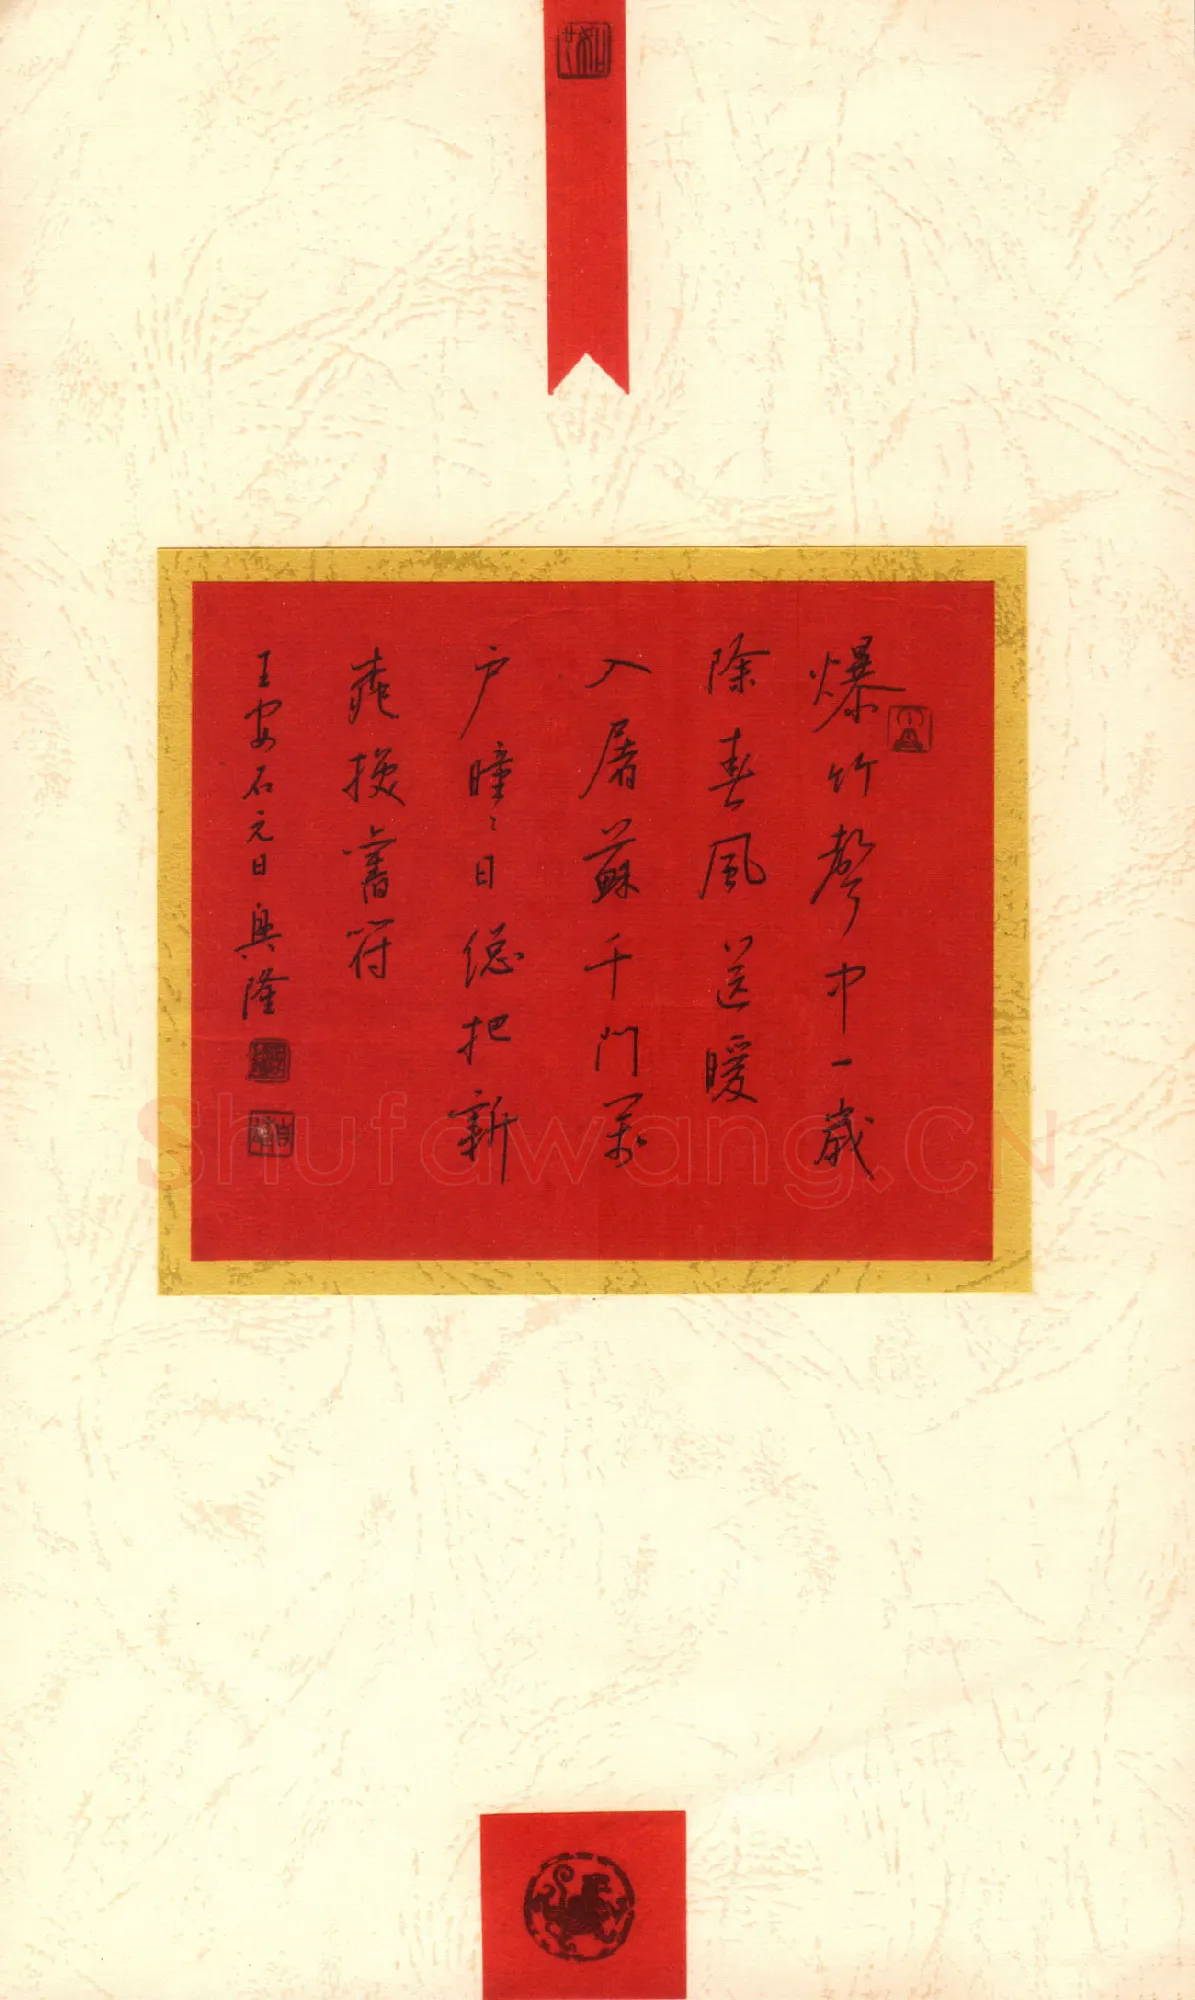 爆竹聲中一歲
除春風送暖
入屠蘇千門萬
户曈〻日總把新
桃換舊符
王安石元日 興隆
Shufawang.CN